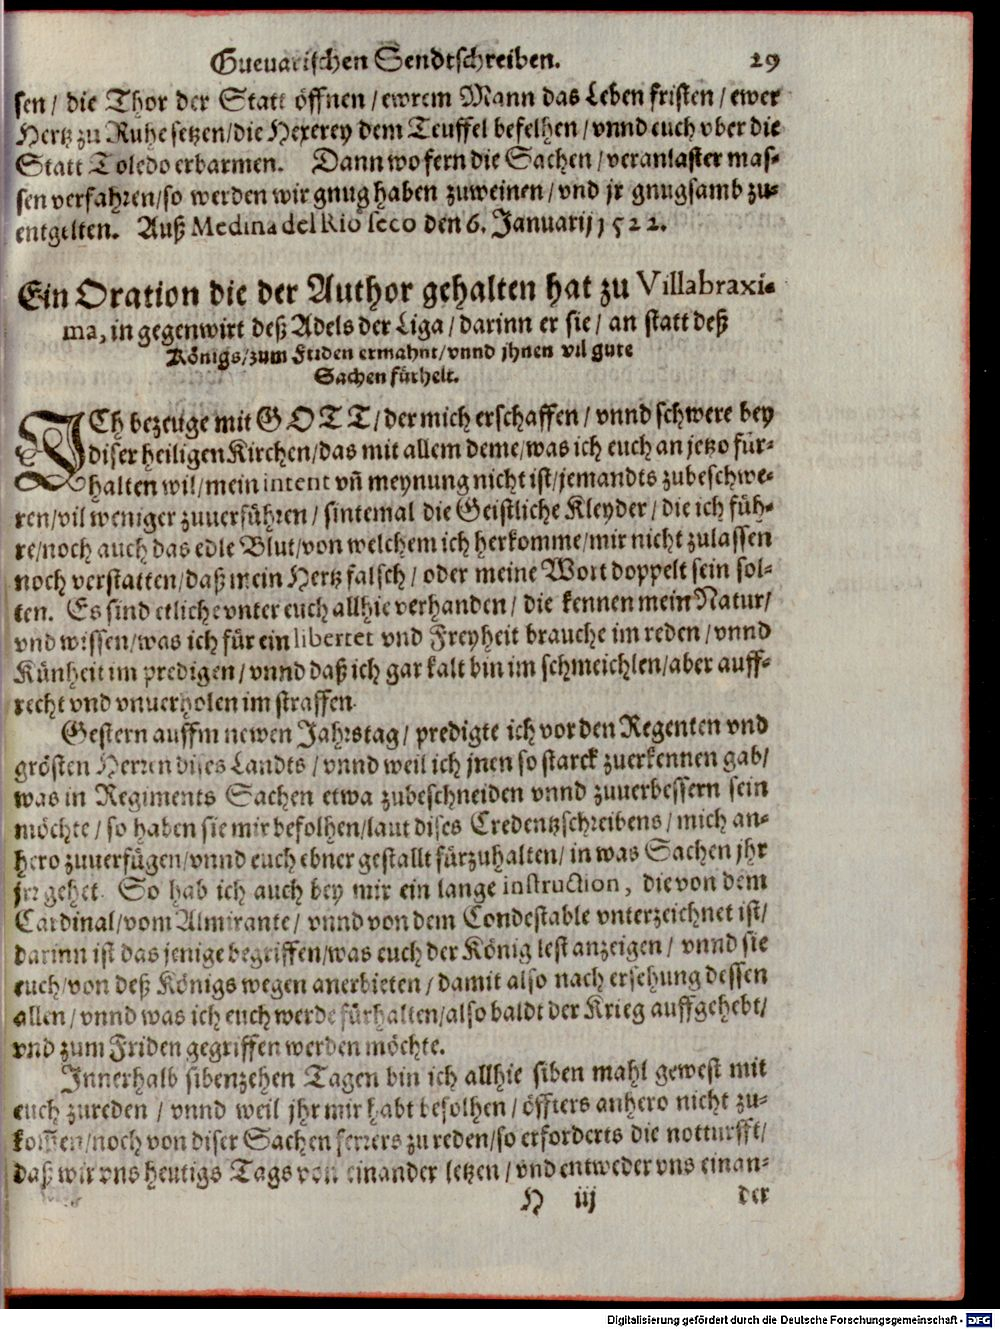 Gueuarischen Sendtschreiben. 29
sen/ die Thor der Statt öffnen/ ewrem Mann das Leben fristen/ ewer
Hertz zu Ruhe setzen/die Hexerey dem Teuffel befelhen/ vnnd euch vber die
Statt Toledo erbarmen. Dann wo fern die Sachen/ veranlaster mas-
sen verfahren/so werden wir gnug haben zuweinen/ vnd jr gnugsamb zu-
entgelten. Auß Medina del Rio seco den 6. Januarij 1522.
Ein Oration die der Author gehalten hat zu Villabraxi-
ma, in gegenwirt deß Adels der Liga/ darinn er sie/ an statt deß
Königs/zum Friden ermahnt/vnnd jhnen vil gute
Sachen fürhelt.
ICh bezeuge mit GOTT/ der mich erschaffen/ vnnd schwere bey
diser heiligen Kirchen/das mit allem deme/was ich euch an jetzo für-
halten wil/mein intent vñ meynung nicht ist/jemandts zubeschwe-
ren/vil weniger zuuerführen/ sintemal die Geistliche Kleyder/ die ich füh-
re/noch auch das edle Blut/von welchem ich herkomme/mir nicht zulassen
noch verstatten/daß mein Hertz falsch/ oder meine Wort doppelt sein sol-
ten. Es sind etliche vnter euch allhie verhanden/ die kennen mein Natur/
vnd wissen/was ich für ein libertet vnd Freyheit brauche im reden/ vnnd
Künheit im predigen/ vnnd daß ich gar kalt bin im schmeichlen/aber auff-
recht vnd vnuerholen im straffen.
Gestern auffm newen Jahrstag/ predigte ich vor den Regenten vnd
grösten Herren dises Landts/ vnnd weil ich jnen so starck zuerkennen gab/
was in Regiments Sachen etwa zubeschneiden vnnd zuuerbessern sein
möchte/ so haben sie mir befolhen/laut dises Credentzschreibens/ mich an-
hero zuuerfügen/vnnd euch ebner gestallt fürzuhalten/ in was Sachen jhr
jrr gehet. So hab ich auch bey mir ein lange instruction, die von dem
Cardinal/vom Almirante/ vnnd von dem Condestable vnterzeichnet ist/
darinn ist das jenige begriffen/was euch der König lest anzeigen/ vnnd sie
euch/von deß Königs wegen anerbieten/ damit also nach ersehung dessen
allen/ vnnd was ich euch werde fürhalten/also baldt der Krieg auffgehebt/
vnd zum Friden gegriffen werden möchte.
Innerhalb sibenzehen Tagen bin ich allhie siben mahl gewest mit
euch zureden/ vnnd weil jhr mir habt befolhen/ öffters anhero nicht zu-
kommen/noch von diser Sachen ferrers zu reden/so erforderts die notturfft/
daß wir vns heutigs Tags von einander letzen/ vnd entweder vns einan-
H iij der
Digitalisierung gefördert durch die Deutsche Forschungsgemeinschaft - DFG